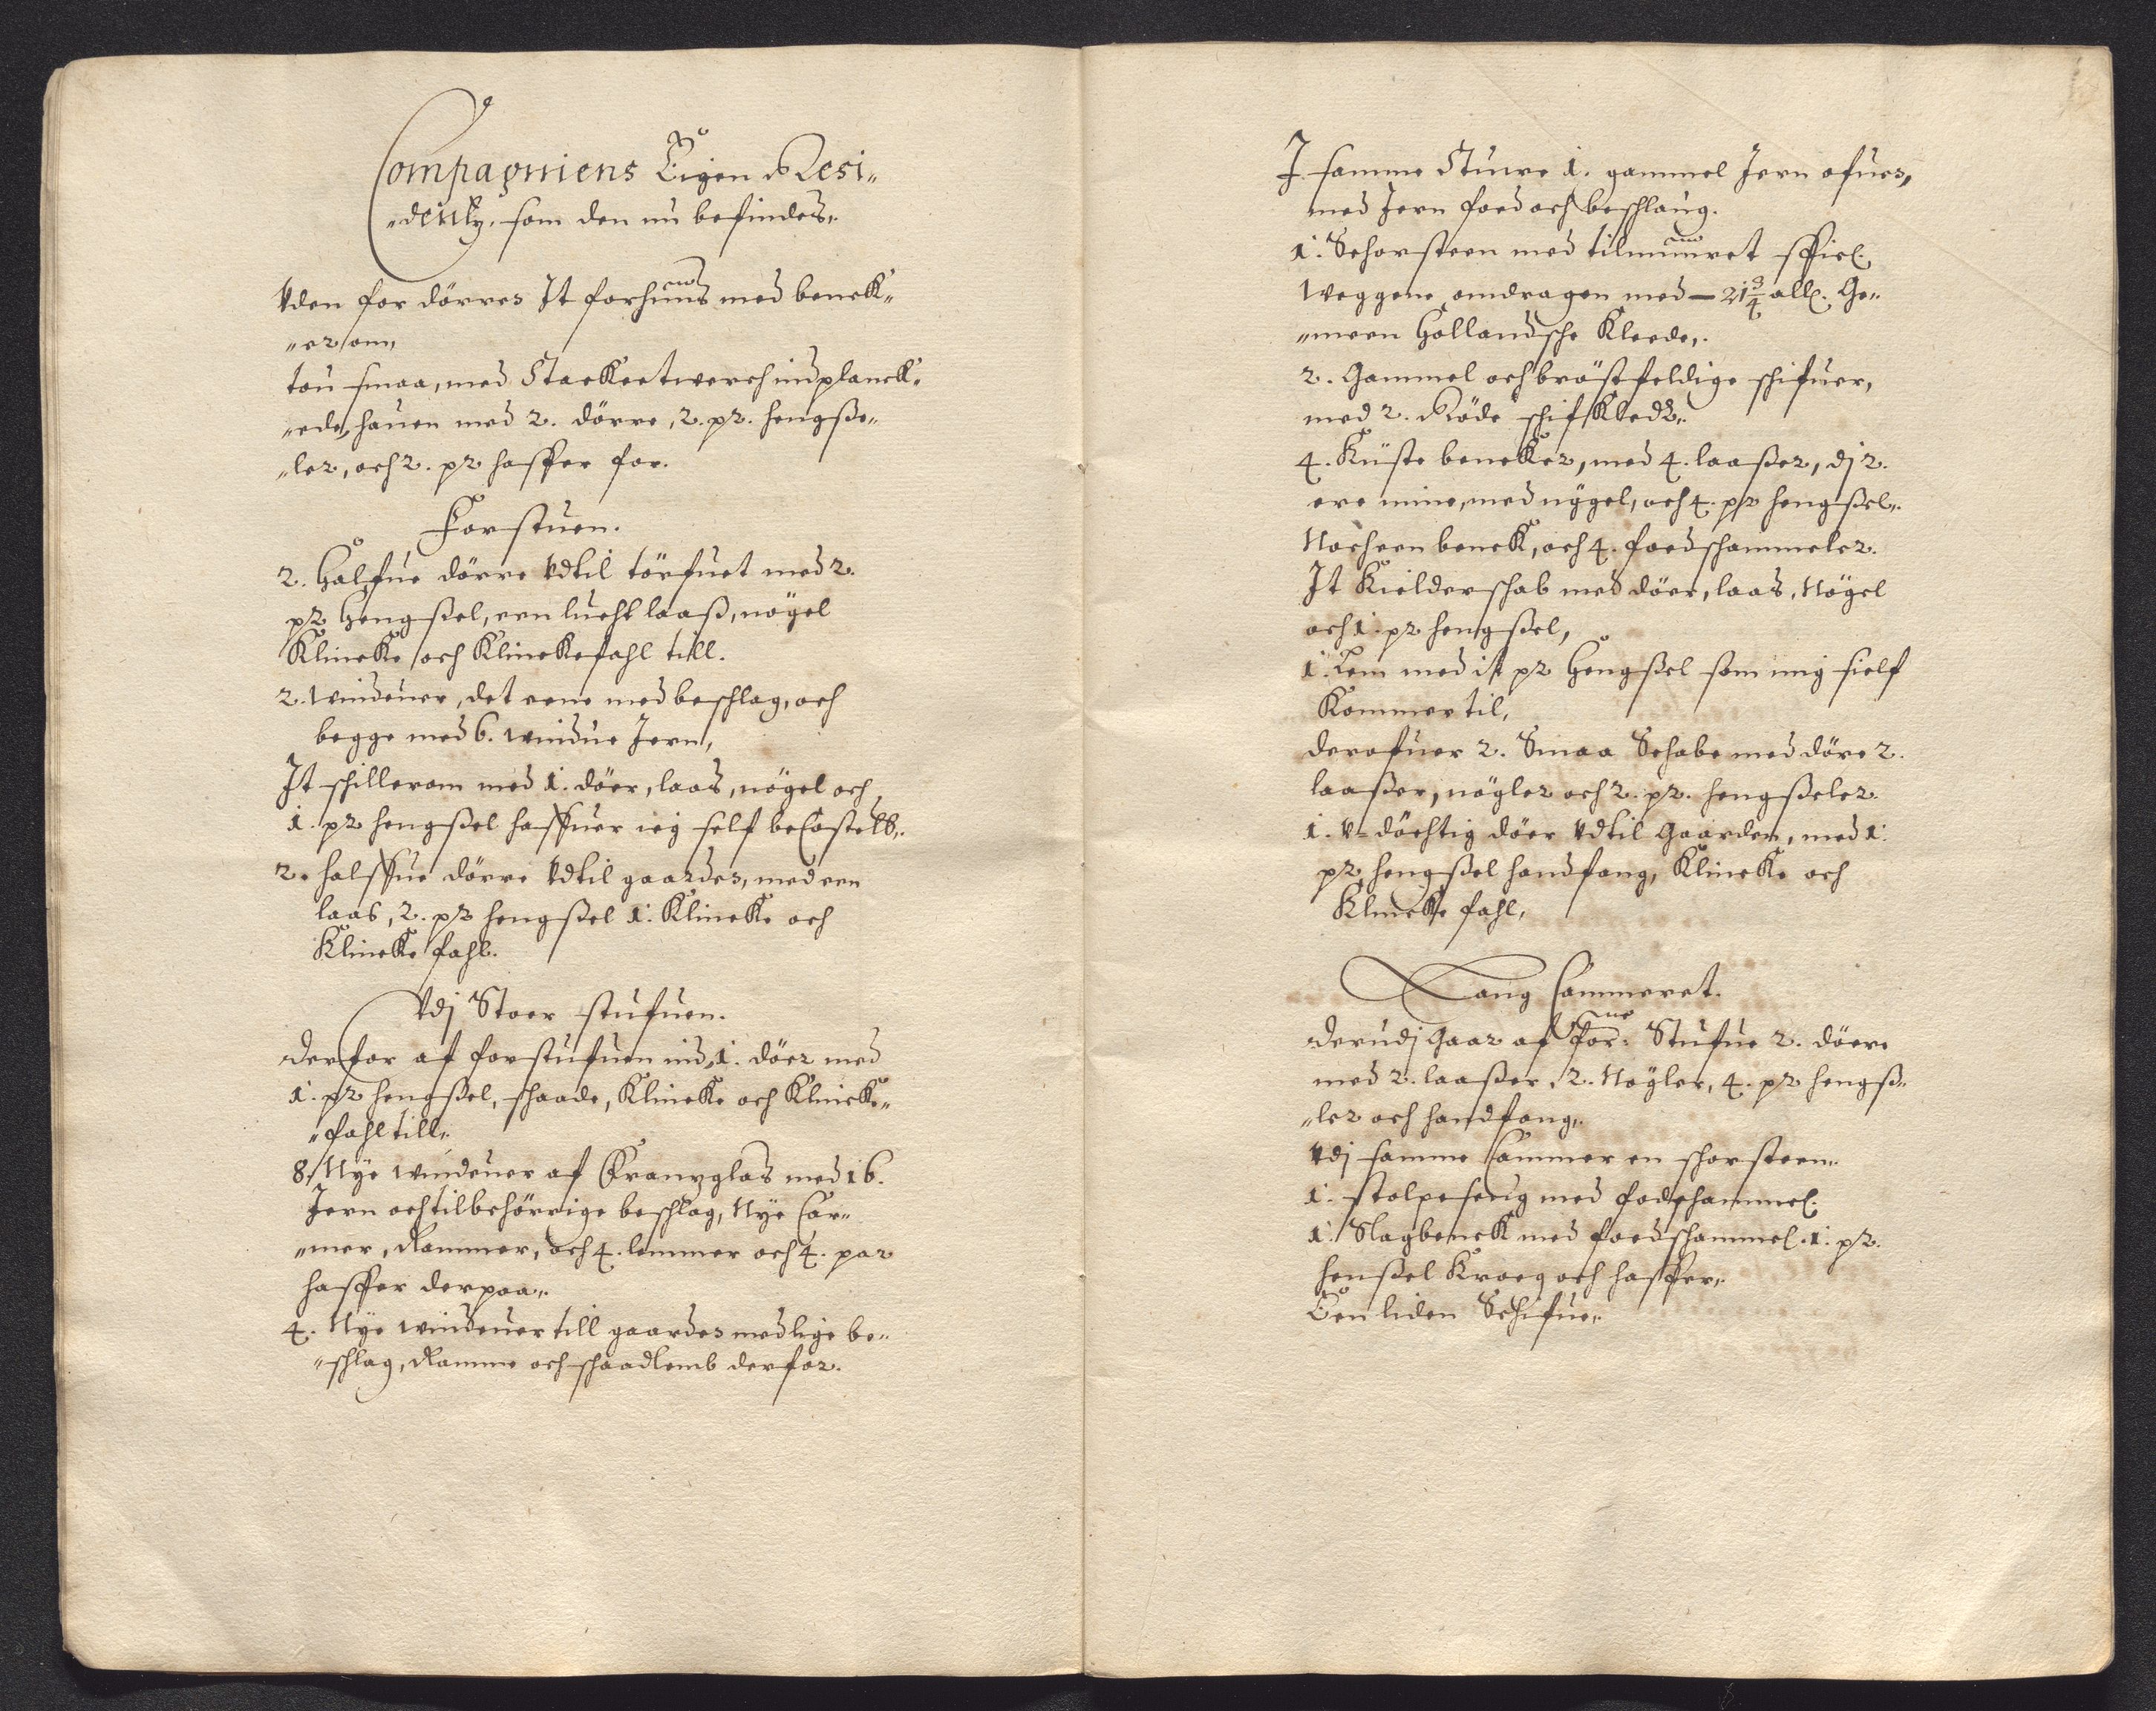 Compagniens Eigen Resi„
„dentz, som den nu befindes„.
Vden for dörren It forhuus med benck„
„er om,
tou smaa, med Stackeetwerch indplanck„
„ede, hauen med 2. dörre, 2. pr. hengsze„
„ler, och 2. pr haspper for.
Forstuen.
2. Halfue dörre Vdtil törfuet med 2.
pr Hengszel, een lucht laasz, nögel
Klincke och Klinckefahl till.
2. Winduer, det eene med beschlag, och
begge med 6. windue Jern,
It schillerom med 1. döer, laas, nögel och
1. pr hengszel haffuer ieg self becostet„.
2. halffue dörre Vdtil gaarden, med een
laas, 2. pr hengszel 1. Klincke och
Klincke fahl.
Vdj Stoer stufuen.
Derfor af forstufuen ind, 1. döer med
1. pr hengszel, schaade, Klincke och Klincke„
„fahl till„.
8. Nye winduer af Frantzglas med 16.
Jern och tilbehörrige beschlag, Nye Car„
„mer, Rammer, och 4. lemmer och 4. par
haspper derpaa„.
4. Nye winduer till gaarden med lige be„
„schlag, Ramme och schaadlemb derfor.
J samme Stuve 1. gammel Jern ofuen,
med Jern foed och beschlaug.
1. Schorsteen med tilmuuret spiel.
Weggene omdragen med — 21 3/4 all. Ge„
„meen Hollandsche Kleede„.
2. Gammel och bröstfeldige schifuer,
med 2. Röde schif Klede„.
4. Kiiste bencker, med 4. laaszer, dj 2.
ere mine, med nygel, och 4. pr hengszel„.
Noch een benck, och 4. foedschammeler.
It Kielderschab med döer, laas, Nögel
och 1. pr hengszel,
1. Lem med it pr Hengszel som mig sielf
Kommer til,
derofuer 2. Smaa Schabe med döre 2.
laaszer, nögler och 2. pr. hengszeler.
1. V-döchtig döer Vdtil Gaarden, med 1.
pr hengszel handfang, Klincke och
Klincke fahl,
Lang Cammeret.
Derudj Gaar af for: Stufue 2. döere
med 2. laaszer, 2. Nögler, 4. pr hengsz„
„ler och handfang„.
Vdj samme Cammer en schorsteen„.
1. stolpeseng med fodschammel.
1. Slagbenck med foedschammel. 1. pr.
henszel Kroeg och haspper„.
Een liden Schifue„.